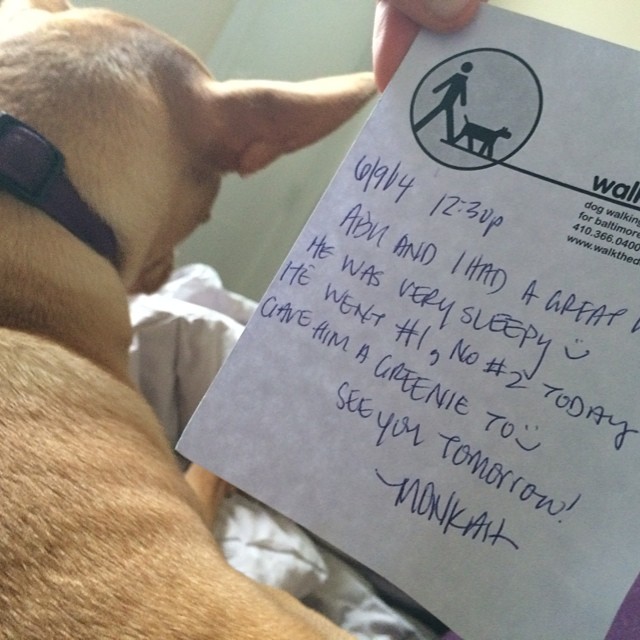 walk
dog walkin
for baltimor
410.366.0400
www.walkthed
6/9/14 12:30p
ADU AND I HAD A GREAT
HE WAS VERY SLEEPY
HE WENT #1, NO #2 TODAY
GAVE HIM A GREENIE TO
SEE YOU TOMORROW!